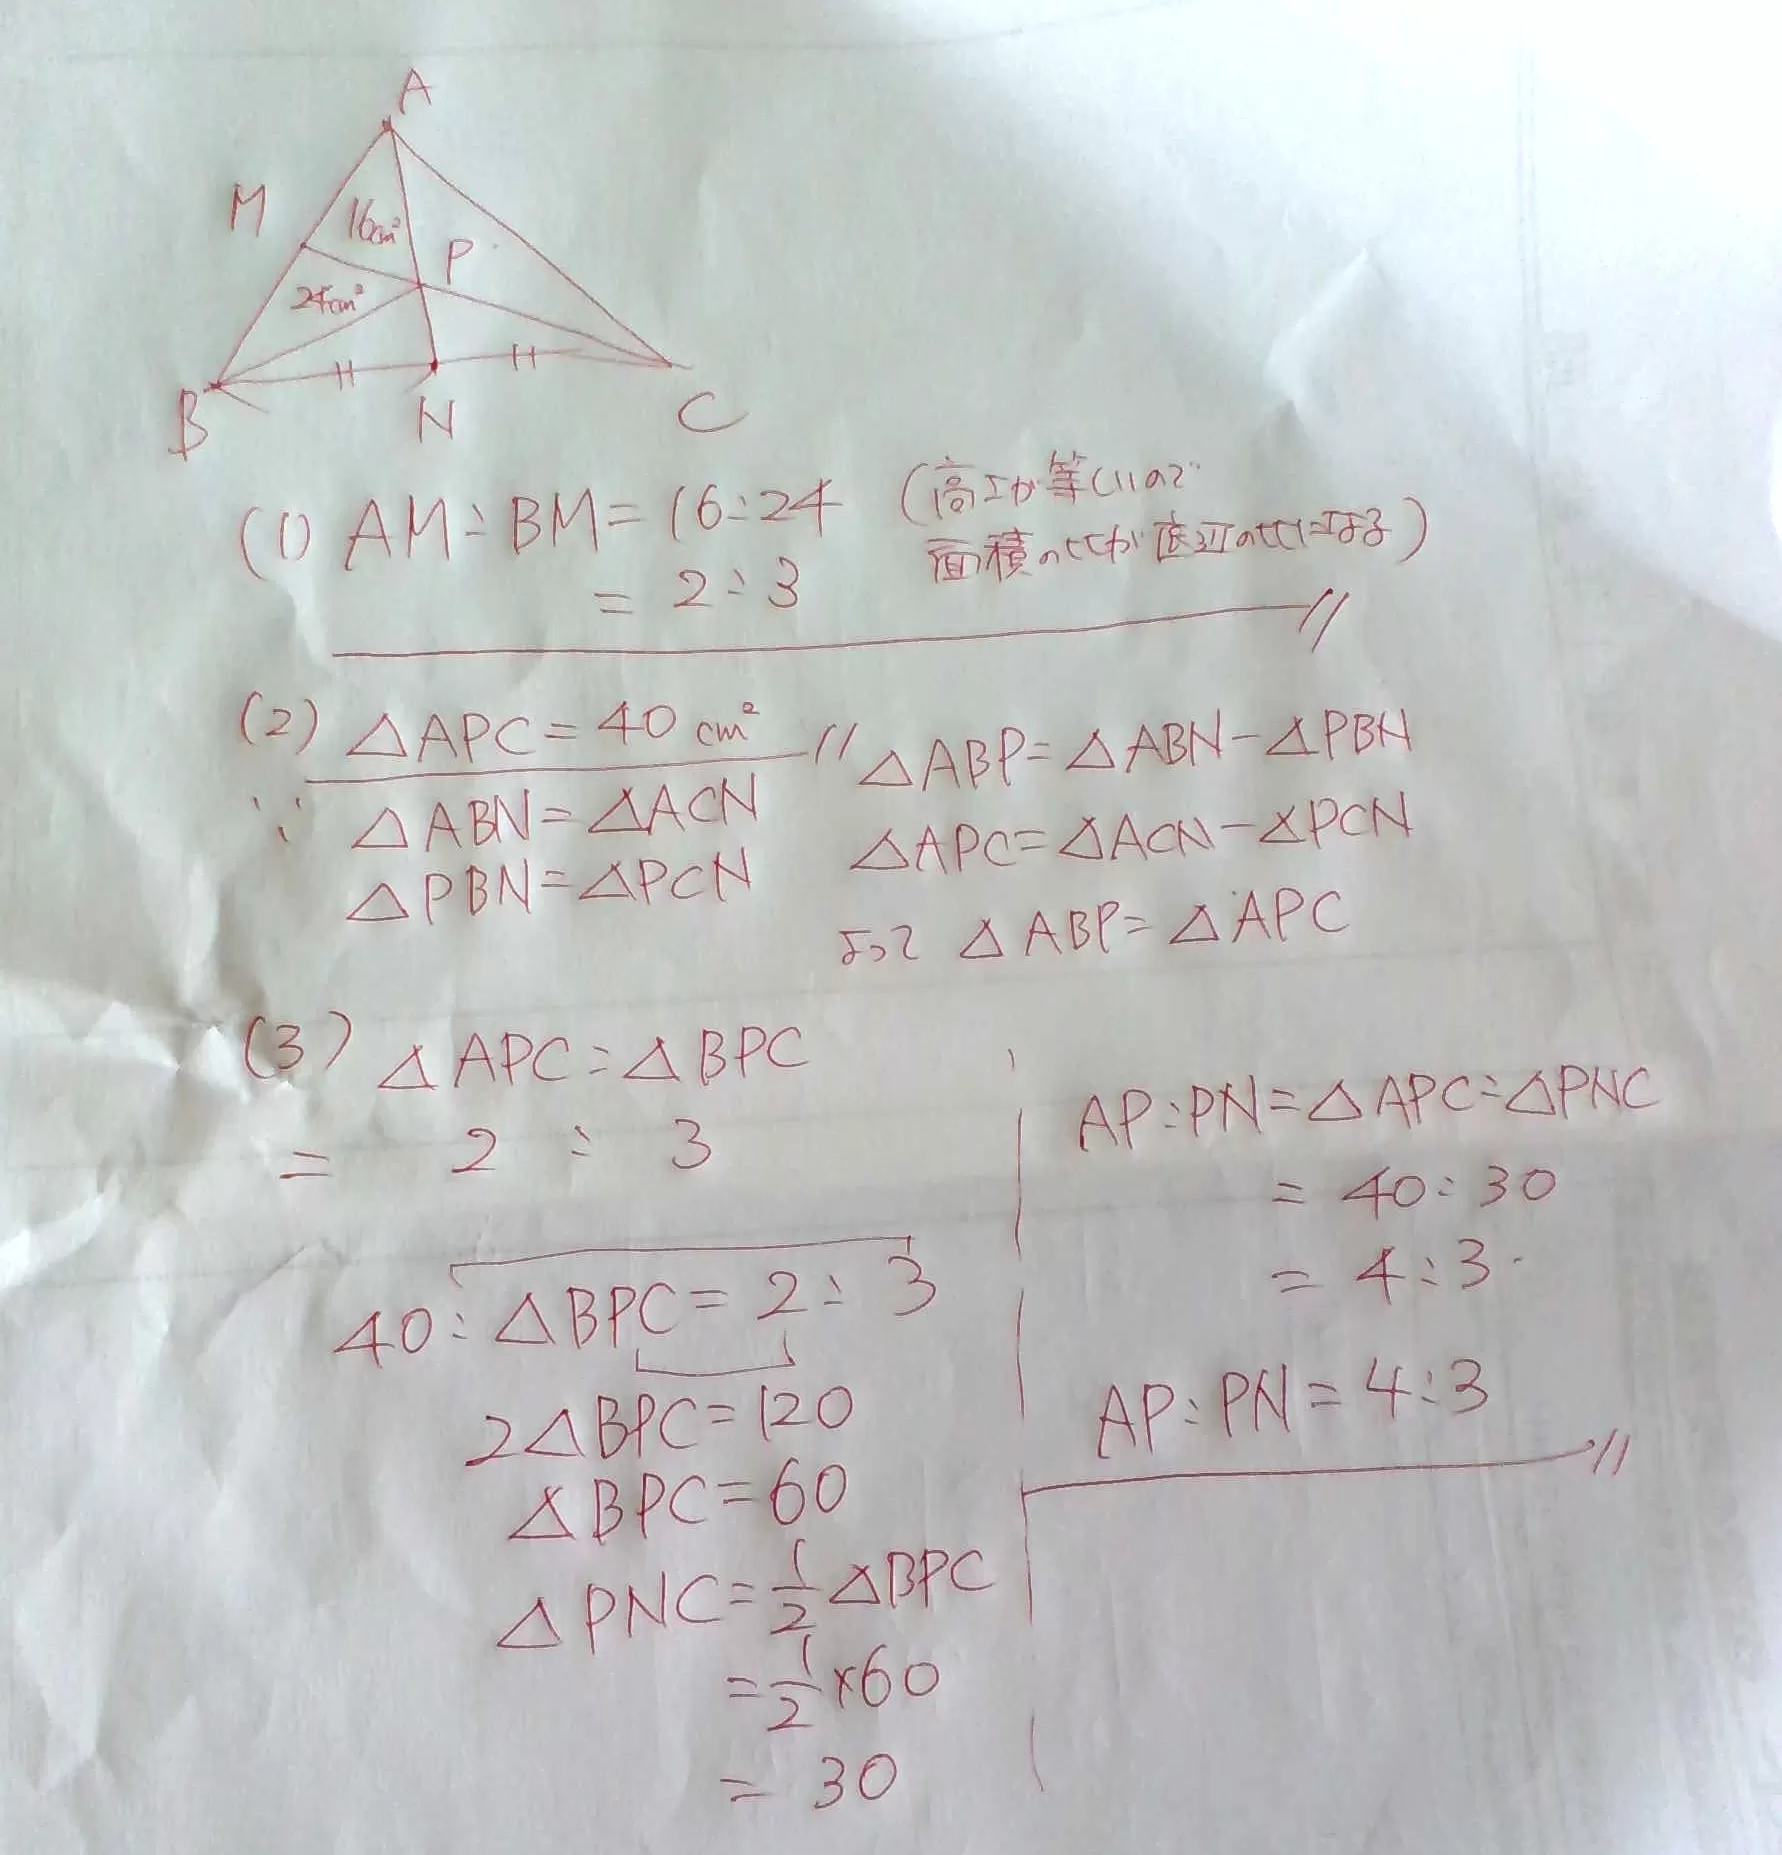 A
M
16cm²
P
24cm²
B
N
C
(1) AM:BM=16:24 (高さが等しいので
面積の比が底辺の比になる)
= 2:3
(2) △APC=40cm²
△ABP=△ABN-△PBN
∵ △ABN=△ACN
△APC=△ACN-△PCN
△PBN=△PCN
よって △ABP=△APC
(3) △APC:△BPC
= 2 : 3
40:△BPC=2:3
2△BPC=120
△BPC=60
△PNC=1/2△BPC
=1/2×60
=30
AP:PN=△APC:△PNC
=40:30
=4:3
AP:PN=4:3